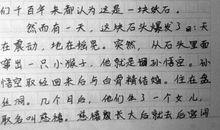 们千百年来都认为这是一块妖石。
然而有一天，这块石头爆发了：天
在震动，地在摇晃。突然，从石头里面
蹿出一只小猴子，他就是猴孙悟空。孙
悟空取经回来后与白骨精结婚。住在盘
丝洞。几个月后，他们生了一个女儿，
取名叫悠嬉。悠嬉般长大后就去后宫